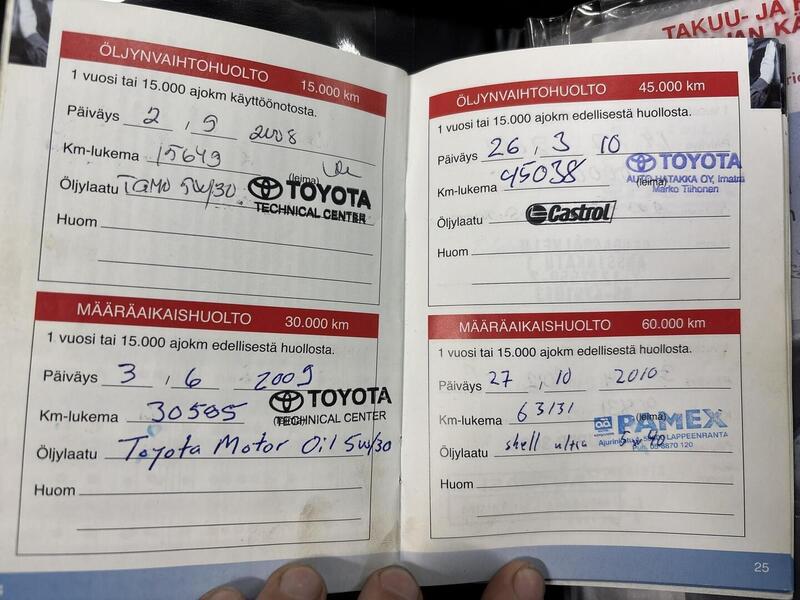 ÖLJYNVAIHTOHUOLTO 15.000 km
1 vuosi tai 15.000 ajokm käyttöönotosta.
Päiväys 2 , 9 2008
Km-lukema 15649
(leima)
Öljylaatu TGMO 5w/30
TOYOTA
TECHNICAL CENTER
Huom
MÄÄRÄAIKAISHUOLTO 30.000 km
1 vuosi tai 15.000 ajokm edellisestä huollosta.
Päiväys 3 , 6 2009
Km-lukema 30505
TOYOTA
TECHNICAL CENTER
Öljylaatu Toyota Motor Oil 5w/30
Huom
TAKUU- JA
ÖLJYNVAIHTOHUOLTO 45.000 km
1 vuosi tai 15.000 ajokm edellisestä huollosta.
Päiväys 26 , 3 10
Km-lukema 45038
(leima)
TOYOTA
AUTO-HATAKKA OY, Imatra
Marko Tiihonen
Öljylaatu Castrol
Huom
MÄÄRÄAIKAISHUOLTO 60.000 km
1 vuosi tai 15.000 ajokm edellisestä huollosta.
Päiväys 27 , 10 2010
Km-lukema 63131
(leima)
PAMEX
LAPPEENRANTA
Öljylaatu shell ultra 5w40
Huom
25